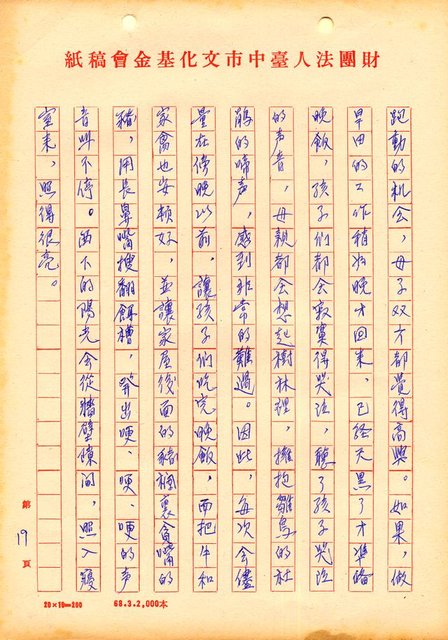 財團法人臺中市文化基金會稿紙
跑動的机会，母子双方都覺得高興。如果，做
旱田的工作稍為晚才回來，已經天黑了才準备
晚飯，孩子们都会寂寞得哭泣，聽了孩子哭泣
的声音，母親都会想起樹林裡，擁抱雛鳥的杜
鵑的啼声，感到非常的難過。因此，每次会儘
量在傍晚以前，讓孩子们吃完晚飯，而把牛和
家禽也安頓好，並讓家屋後面的豬欄裏貪嘴的
豬，用長鼻嘴搜翻餌槽，發出哽、哽、哽的声
音叫不停。西下的陽光会從牆壁隙间，照入寢
室来，照得很亮。
第19頁
20×10=200
68.3.2,000本